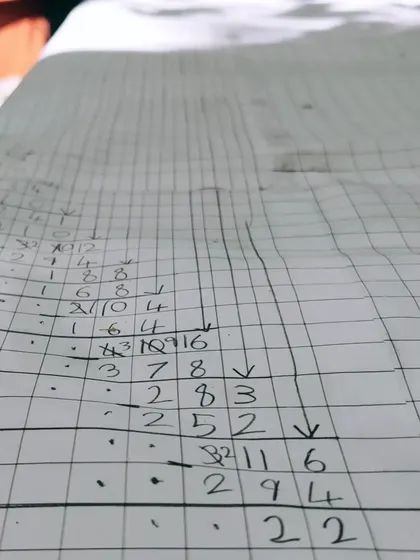 4 1
1 0
3̶2 1̶0̶ 12
2 9 4
1 8 8
1 6 8
2̶1 10 4
1 6 4
4̶3 1̶0̶9 16
3 7 8
2 8 3
2 5 2
3̶2 11 6
2 9 4
2 2